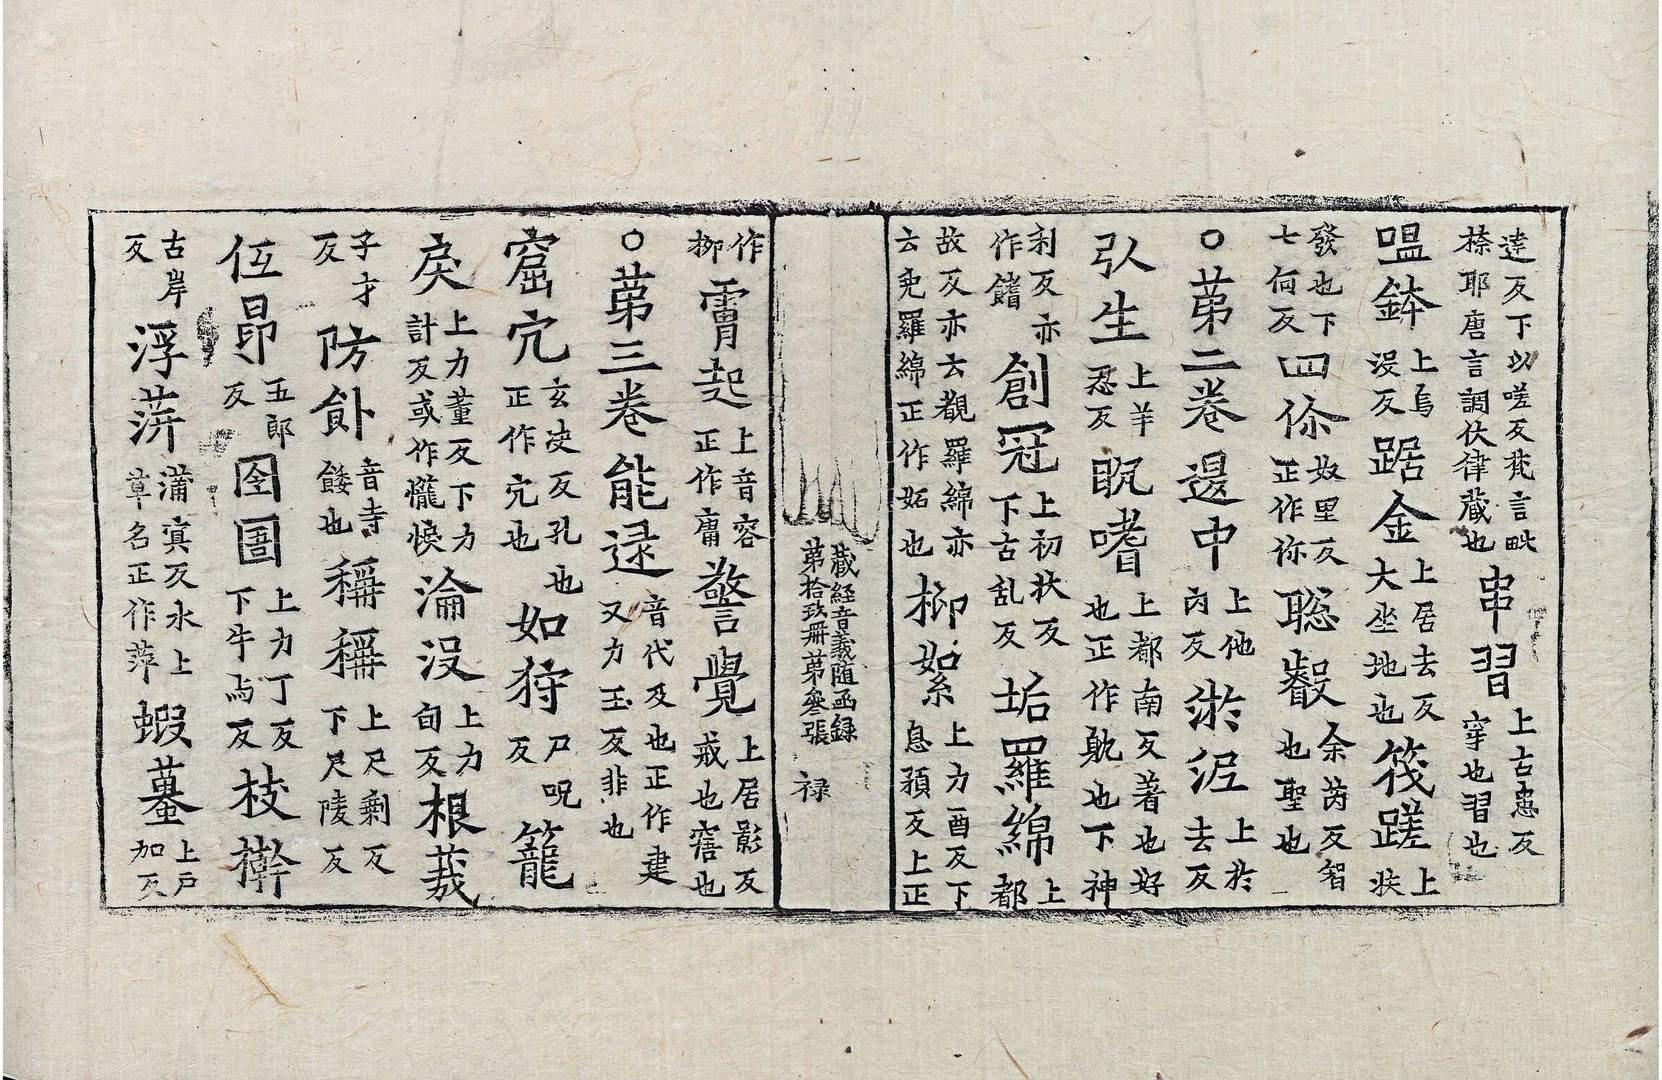 達反下以嗟反梵言毗
捺耶唐言調伏律藏也串習上古患反
穿也習也
嗢鉢上烏
没反踞金上居去反
大坐地也筏蹉上
疾
發也下
七何反四你奴里反
正作祢聡叡余芮反智
也聖也
○苐二卷邊中上他
内反淤泥上於
去反
弘生上羊
忍反躭嗜上都南反著也好
也正作躭也下神
利反亦
作餙創冠上初状反
下古乱反垢羅綿上
都
故反亦云覩羅綿亦
云兠羅綿正作妬也柳絮上力酉反下
息預反上正
藏経音義随函録
苐拾玖册苐叄張 禄
作
栁霄起上音容
正作庸警覺上居影反
戒也寤也
○苐三卷能逯音代及也正作逮
又力玉反非也
窟宂玄决反孔也
正作穴也如狩尸呪
反籠
戾上力董反下力
計反或作儱悷淪没上力
旬反根栽
子才
反防飤音寺
餧也稱稱上尺剩反
下尺陵反
伍昂五郎
反囹圄上力丁反
下牛与反枝榦
古岸
反浮蓱蒲㝠反水上
草名正作萍蝦蟇上户
加反